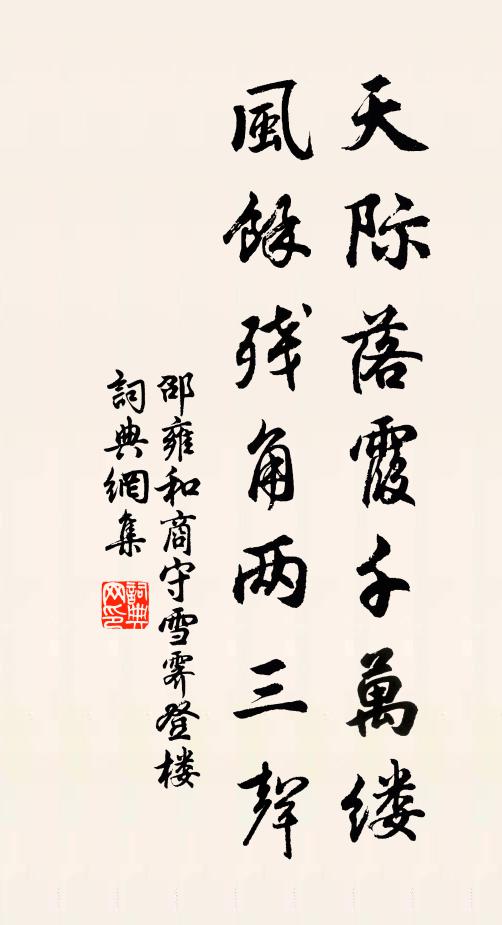 天际落霞千萬缕
風餘残角两三聲
邵雍和商守雪霽登楼
詞典網集
詞典
网印